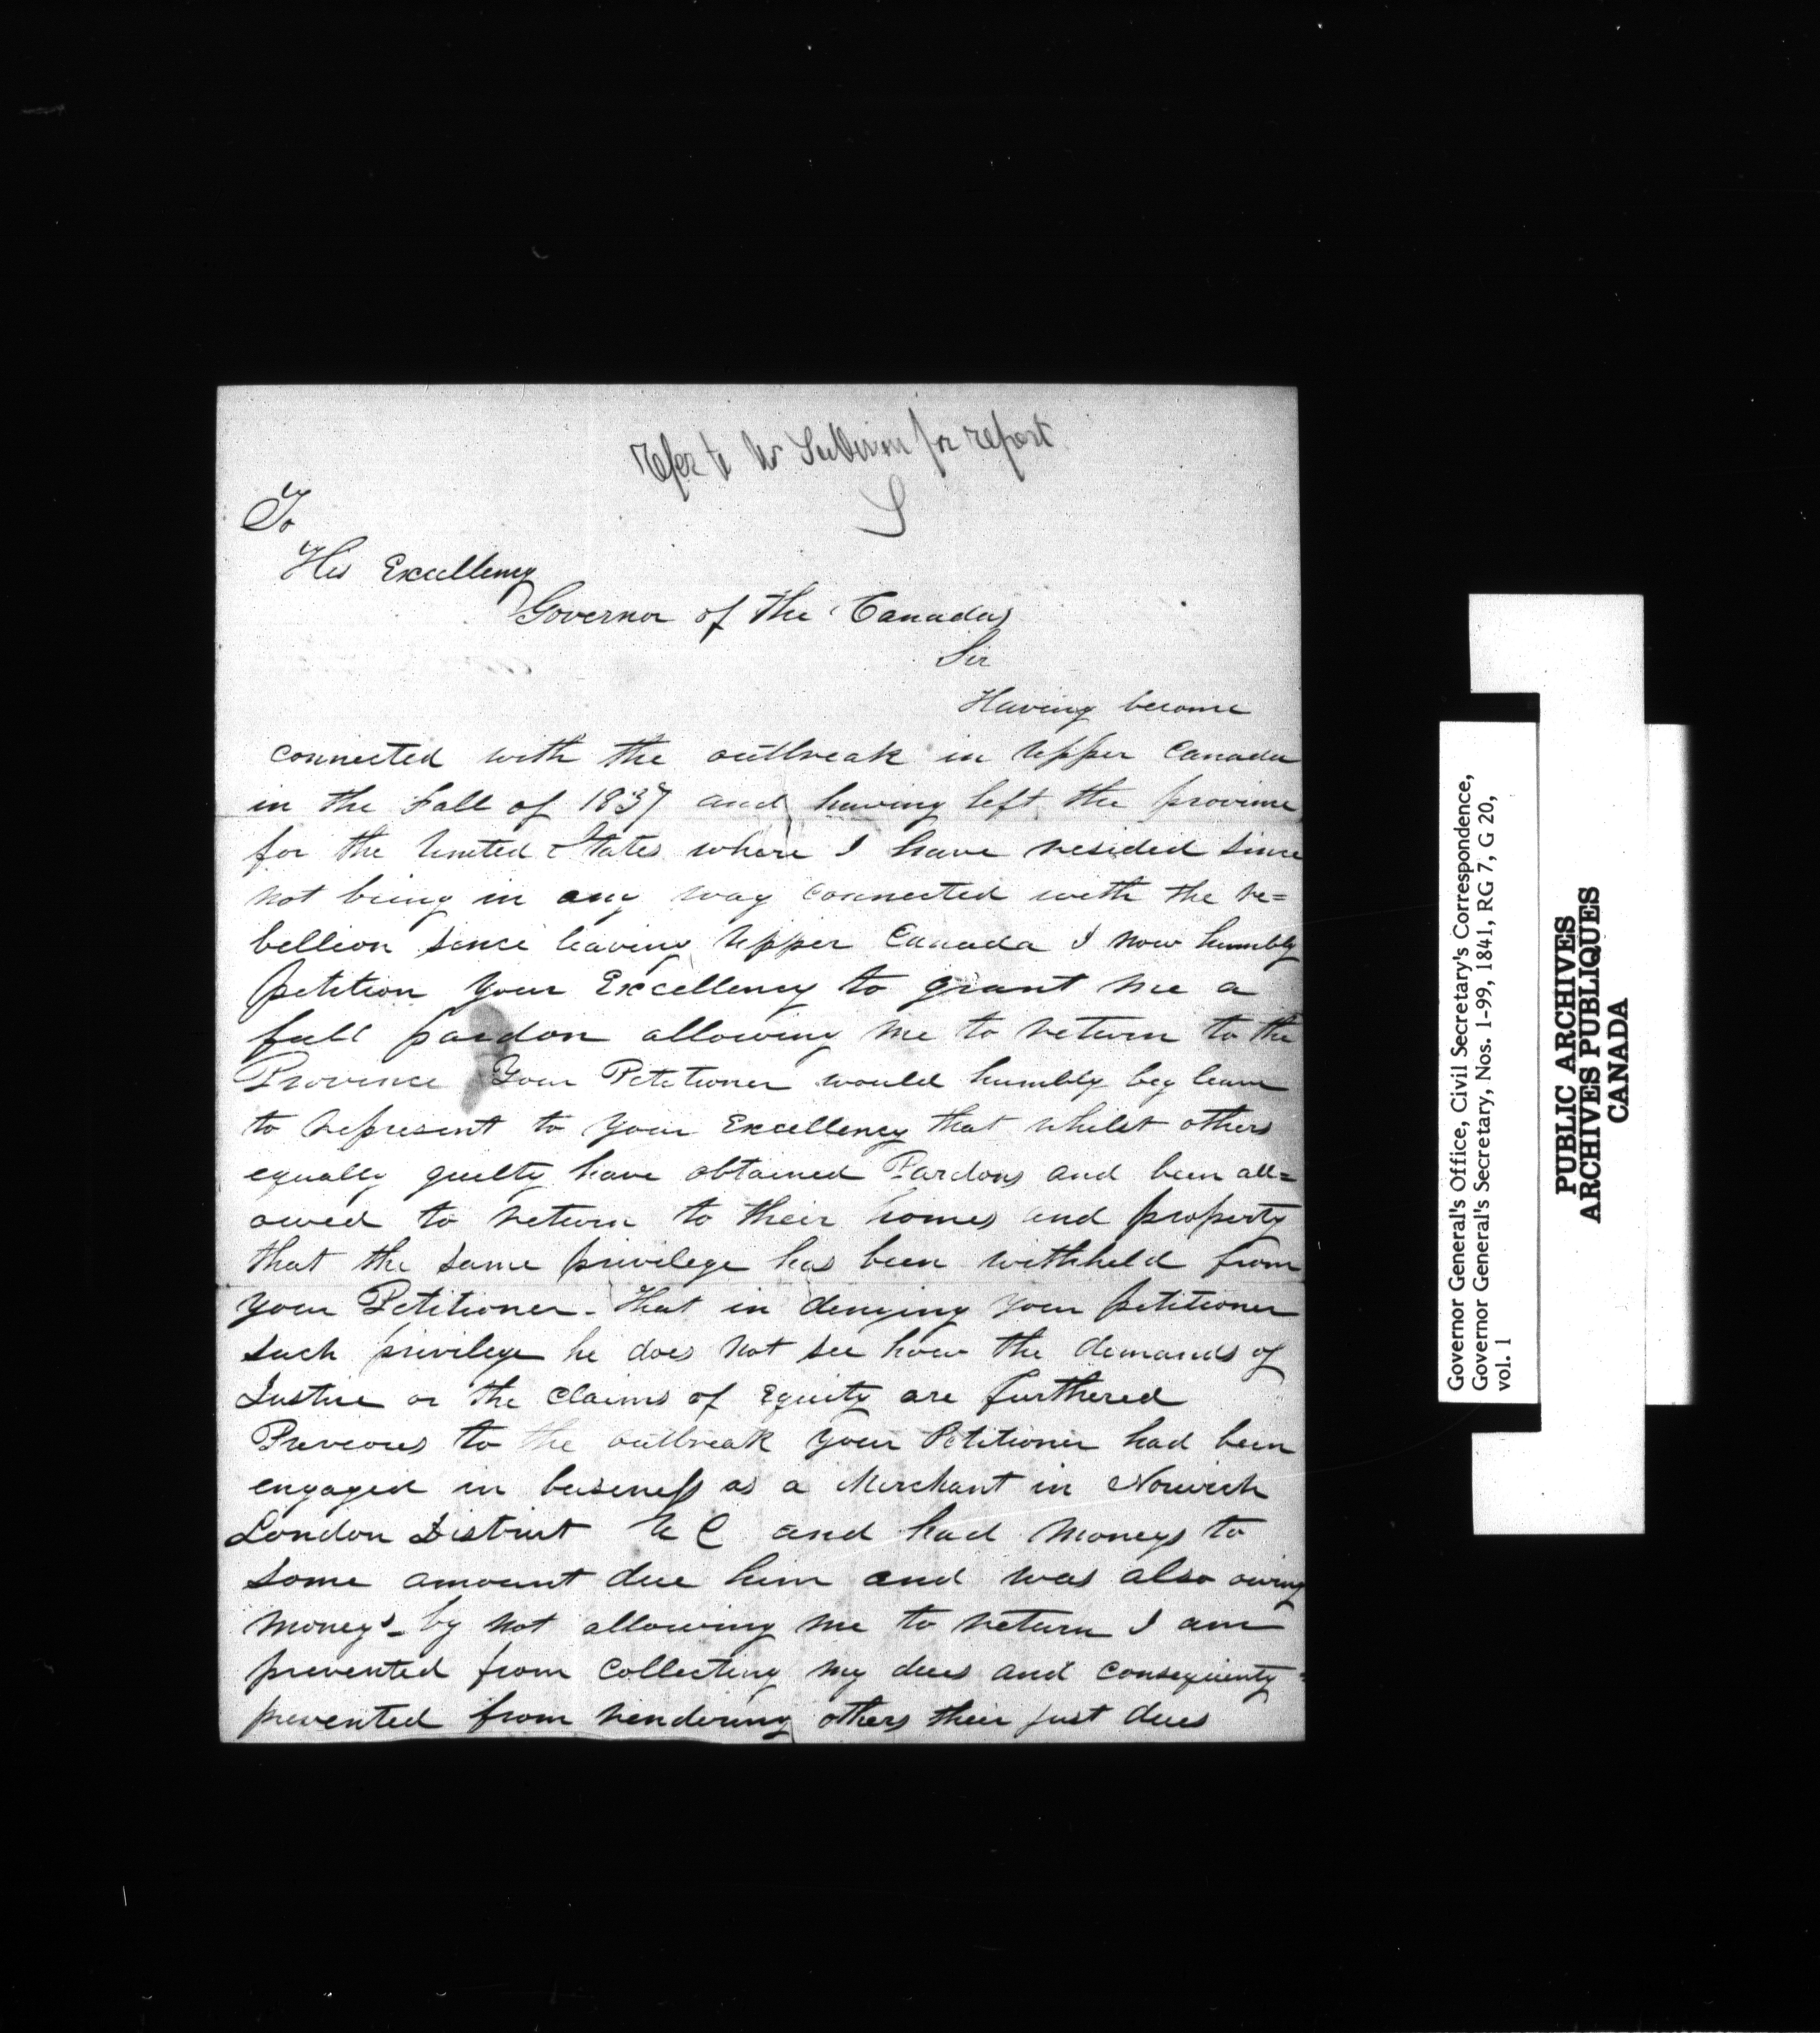 Refer to Mr Sullivan for report
S
To
His Excellency
Governor of the Canadas
Sir
Having become
connected with the outbreak in Upper Canada
in the Fall of 1837 and having left the province
for the United States where I have resided since
not being in any way connected with the re=
bellion since leaving Upper Canada I now humbly
petition your Excellency to grant me a
full pardon allowing me to return to the
Province Your Petitioner would humbly beg leave
to represent to your Excellency that whilst others
equally guilty have obtained Pardons and been all=
owed to return to their homes and property
that the same privilege has been withheld from
your Petitioner - That in denying your petitioner
such privilege he does not see how the demands of
Justice or the Claims of Equity are furthered
Previous to the outbreak your Petitioner had been
engaged in business as a Merchant in Norwich
London District U C and had moneys to
some amount due him and was also owing
moneys - by not allowing me to return I am
prevented from collecting my dues and consequenty
prevented from rendering others their just dues
Governor General's Office, Civil Secretary's Correspondence,
Governor General's Secretary, Nos. 1-99, 1841, RG 7, G 20,
vol. 1
PUBLIC ARCHIVES
ARCHIVES PUBLIQUES
CANADA